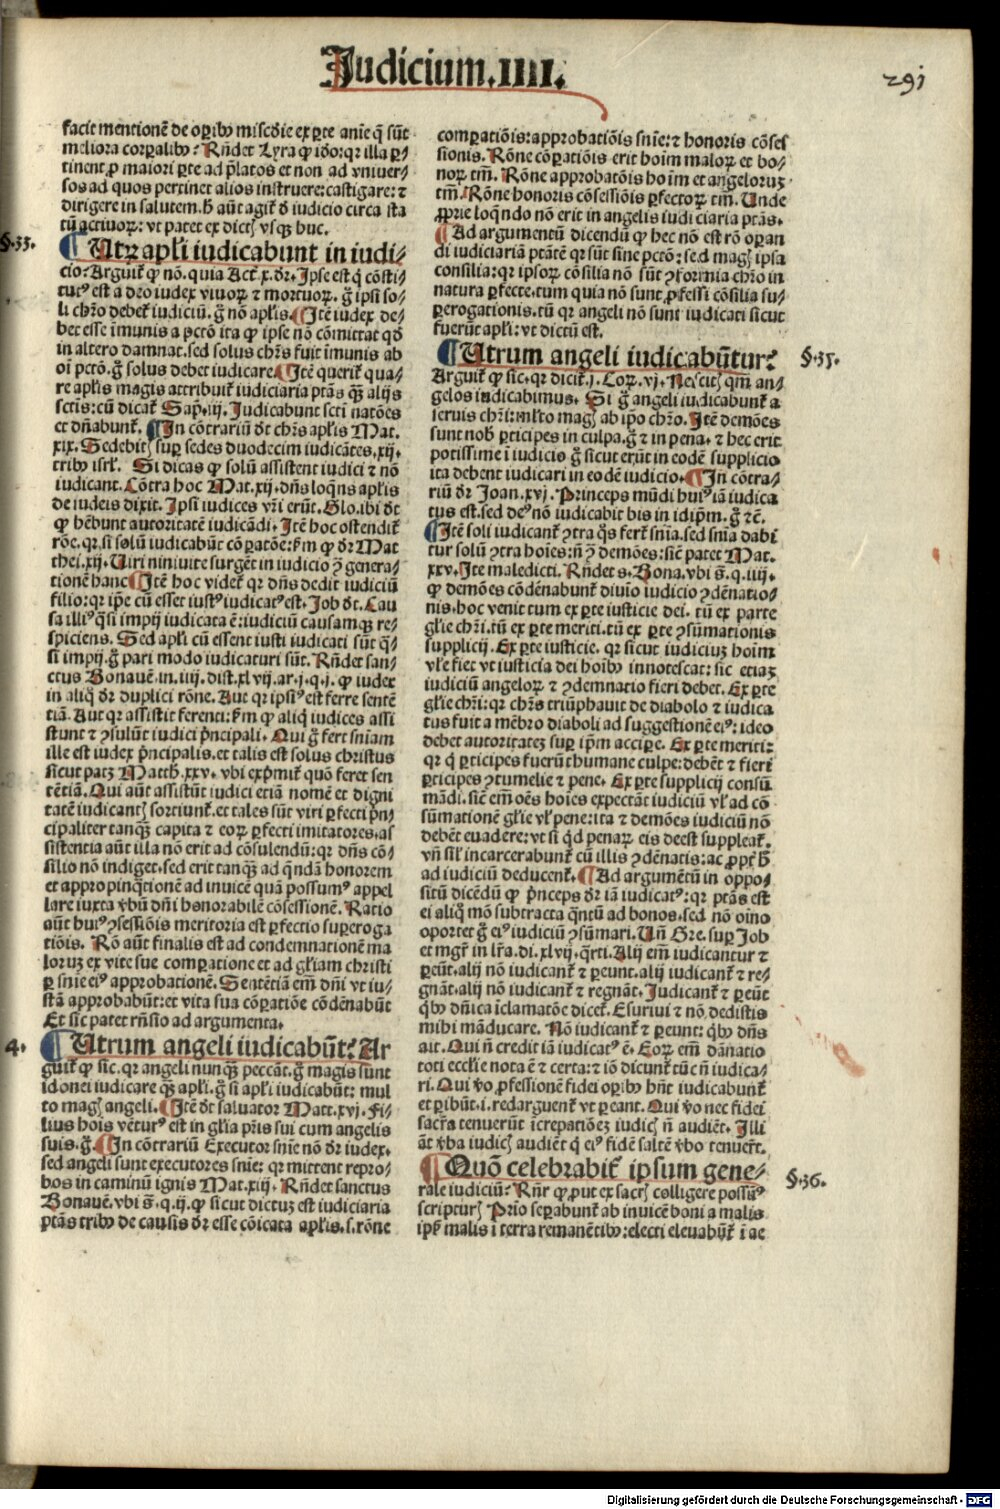 Judicium.IIII.
291
facit mentionē de oꝑibꝰ mis̄cdie ex ꝑte anīe q̄ sūt
meliora corꝑalibꝰ? Rn̄det Lyra ꝙ iđo: qꝛ illa ꝑ⸗
tinent ꝓ maiori ꝑte ad p̄latos et non ad vniuer⸗
sos ad quos pertinet alios instruere: castigare: ⁊
dirigere in salutem. h̄ aūt agit̄ đ iudicio circa sta
tū actiuoꝝ: vt patet ex dictꝭ vsqꝫ huc.
§.33.
Utꝝ apl̄i iudicabunt in iudi⸗
cio: Arguit̄ ꝙ nō. quia Act̄. x. dr̄. Ipse est q̄ cōsti⸗
tutꝰ est a deo iudex viuoꝝ ⁊ mortuoꝝ. ḡ ipsi so⸗
li chr̄o debet̄ iudiciū. ḡ nō apl̄is. Itē iudex de⸗
bet esse īmunis a pctō ita ꝙ ipse nō cōmittat qđ
in altero damnat. sed solus chr̄s fuit īmunis ab
oī pctō. ḡ solus debet iudicare. Itē querit̄ qua⸗
re apl̄is magis attribuit̄ iudiciaria ptās qꝫ alijs
sctīs: cū dicat̄ Sap̄. iij. Iudicabunt scti natōes
et dn̄abunt̄. In cōtrariū đt chr̄s apl̄is Mat.
xix. Sedebitꝭ suꝑ sedes duodecim iudicātes. xij.
tribꝰ isrl̄. Si dicas ꝙ solū assistent iudici ⁊ nō
iudicant. Cōtra hoc Mat. xij. dn̄s loq̄ns apl̄is
de iudeis dixit. Ipsi iudices vr̄i erūt. Glo. ibi đt
ꝙ hēbunt autoritatē iudicādi. Itē hoc ostendit̄
rōe. qꝛ. si solū iudicabūt cō ꝑatōe: ẜm ꝙ dr̄ Mat
thei. xij. Uiri niniuite surgēt in iudicio ꝯ̄ genera⸗
tionē hanc Itē hoc videt̄ qꝛ dn̄s dedit iudiciū
filio: qꝛ ip̄e cū esset iustꝰ iudicatꝰ est. Job đt. Cau
sa illiꝰ q̄si impij iudicata ē: iudiciū causamqꝫ re⸗
spiciens. Sed apl̄i cū essent iusti iudicati sūt q̄⸗
si impij. ḡ pari modo iudicaturi sūt. Rn̄det san⸗
ctus Bonauē. in. iiij. dist. xl vij. ar. j. q. j. ꝙ iudex
in aliq̄ dr̄ duplici rōne. Aut qꝛ ipsiꝰ est ferre sentē
tiā. Aut qꝛ assistit ferenti: ẜm ꝙ aliq̄ iudices assi
stunt ⁊ ꝯsulūt iudici p̄ncipali. Qui ḡ fert sniam
ille est iudex p̄ncipalis. et talis est solus christus
sicut patꝫ Matth. xxv. vbi exp̄mit̄ quō feret sen
tētiā. Qui aūt assistūt iudici etiā nomē et digni
tatē iudicantꝭ sortiunt̄. et tales sūt viri ꝑfecti p̄n⸗
cipaliter tanqꝫ capita ⁊ eoꝝ ꝑfecti imitatores. as
sistentia aūt illa nō erit ad cōsulendū: qꝛ dn̄s cō⸗
silio nō indiget. sed erit tanqꝫ ad q̄ndā honorem
et appropinq̄tionē ad inuicē quā possumꝰ appel
lare iuxta ꝟbū dn̄i honorabilē cōsessionē. Ratio
aūt huiꝰ ꝯsessiōis meritoria est ꝑfectio suꝑeroga
tiōis. Rō aūt finalis est ad condemnationē ma
loruꝫ ex vite sue comꝑatione et ad gl̄iam christi
ꝑ snīe eiꝰ approbationē. Sentētiā em̄ dn̄i vt iu⸗
stā approbabūt: et vita sua cōꝑatiōe cōdēnabūt
Et sic patet rn̄sio ad argumenta.
4.
Utrum angeli iudicabūt? Ar
guit̄ ꝙ sic. qꝛ angeli nunqꝫ peccāt. ḡ magis sunt
idonei iudicare qꝫ apl̄i. ḡ si apl̄i iudicabūt: mul
to magꝭ angeli. Itē đt saluator Matt. xvj. Fi⸗
lius hoīs vēturꝰ est in gl̄ia pr̄is sui cum angelis
suis. ḡ. In cōtrariū Executor snīe nō dr̄ iudex.
sed angeli sunt executores snīe: qꝛ mittent repro⸗
bos in caminū ignis Mat. xiij. Rn̄det sanctus
Bonauē. vbi s̄. q. ij. ꝙ sicut dictuꝫ est iudiciaria
ptās tribꝰ de causis dr̄ esse cōicata apl̄is. s. rōne
comꝑatiōis: approbatiōis snīe: ⁊ honoris cōses
sionis. Rōne cōꝑatiōis erit hoīm maloꝝ et bo⸗
noꝝ tm̄. Rōne approbatōis hoīm et angeloruꝫ
tm̄. Rōne honoris cōsessiōis ꝑfectoꝝ tm̄. Unde
ꝓprie loq̄ndo nō erit in angelis iudiciaria ptās.
Ad argumentū dicendū ꝙ hec nō est rō oꝑan
di iudiciariā ptātē qꝛ sūt sine pctō: sed magꝭ ipsa
consilia: qꝛ ipsoꝝ cōsilia nō sūt ꝯformia chr̄o in
natura ꝑfecte. tum quia nō sunt ꝓfessi cōsilia su⸗
ꝑerogationis. tū qꝛ angeli nō sunt iudicati sicut
fuerūt apl̄i: vt dictū est.
Utrum angeli iudicabūtur?
§.35.
Arguit̄ ꝙ sic. qꝛ dicit̄. j. Coꝝ. vj. Nescitꝭ qm̄ an⸗
gelos iudicabimus. Si ḡ angeli iudicabunt̄ a
seruis chr̄i: ml̄to magꝭ ab ip̄o chr̄o. Itē demōes
sunt nob̄ ꝑticipes in culpa. ḡ ⁊ in pena. ⁊ hec erit
potissime ī iudicio ḡ sicut erūt in eodē supplicio
ita debent iudicari in eodē iudicio. In cōtra⸗
riū dr̄ Joan. xvj. Princeps mūdi huiꝰ iā iudica
tus est. sed deꝰ nō iudicabit bis in idip̄m. ḡ ⁊c̄.
Itē soli iudicant̄ ꝯtra q̄s fert̄ snīa. sed snīa dabi
tur solū ꝯtra hoīes: n̄ ꝯ̄ demōes: sic̄ patet Mat.
xxv. Ite maledicti. Rn̄det s. Bona. vbi s̄. q. iiij.
ꝙ demōes cōdēnabunt̄ diuio iudicio ꝯdēnatio⸗
nis. hoc venit tum ex ꝑte iusticie dei. tū ex parte
gl̄ie chr̄i. tū ex ꝑte meriti. tū ex ꝑte ꝯsūmationis
supplicij. Ex ꝑte iusticie. qꝛ sicut iudiciuꝫ hoīmꝫ
vl̄e fiet vt iusticia dei hoībꝰ innotescat: sic etiaꝫ
iudiciū angeloꝝ ⁊ ꝯdemnatio fieri debet. Ex ꝑte
gl̄ie chr̄i: qꝛ chr̄s triūphauit de diabolo ⁊ iudica
tus fuit a mēbro diaboli ad suggestionē eiꝰ: ideo
debet autoritateꝫ suꝑ ip̄m acciꝑe. Ex ꝑte meriti:
qꝛ q̄ ꝑticipes fuerūt humane culpe: debēt ⁊ fieri
ꝑticipes ꝯtumelie ⁊ pene. Ex ꝑte supplicij consū
mādi. sic̄ em̄ oēs hoīes expectāt iudiciū vl̄ ad cō
sūmationē gl̄ie vl̄ pene: ita ⁊ demōes iudiciū nō
debēt euadere: vt si qđ penaꝝ eis deest suppleat̄.
vn̄ sil̄ incarcerabunt̄ cū illis ꝯdēnatis: ac ꝓpt̄ h̄
ad iudiciū deducent̄. Ad argumētū in oppo⸗
sitū dicēdū ꝙ p̄nceps dr̄ iā iudicatꝰ: qꝛ ptās est
ei aliq̄ mō subtracta q̄ntū ad bonos. sed nō oīno
oportet ḡ eiꝰ iudiciū ꝯsūmari. Un̄ Gre. suꝑ Job
et mgr̄ in lr̄a. di. xl vij. q̄rti. Alij em̄ iudicantur ⁊
ꝑeūt. alij nō iudicant̄ ⁊ pereunt. alij iudicant̄ ⁊ re⸗
gnāt. alij nō iudicant̄ ⁊ regnāt. Iudicant̄ ⁊ ꝑeūt
q̄bꝰ dn̄ica īclamatōe dicet̄. Esuriui ⁊ nō dedistis
mihi māducare. Nō iudicant̄ ⁊ pereunt: q̄bꝰ dn̄s
ait. Qui n̄ credit iā iudicatꝰ ē. Eoꝝ em̄ dānatio
toti ecclīe nota ē ⁊ certa: ⁊ iō dicunt̄ tūc n̄ iudica⸗
ri. Qui ꝟo ꝓfessionē fidei oꝑibꝰ hn̄t iudicabunt̄
et ꝑibūt. i. redarguent̄ vt ꝑeant. Qui ꝟo nec fidei
sacr̄a tenuerūt īcrepatiōeꝫ iudicꝭ n̄ audiēt. Illi
āt ꝟba iudicꝭ audiēt q̄ eiꝰ fidē saltē ꝟbo tenuer̄t.
Quō celebrabit̄ ipsum gene⸗
§.36.
rale iudiciū? Rn̄r ꝙ ꝓut ex sacrꝭ colligere possūꝰ
scripturꝭ Prio seꝑabunt̄ ab inuicē boni a malis
ip̄s malis ī terra remanētibꝰ: electi eleuabūt̄ ī ae
Digitalisierung gefördert durch die Deutsche Forschungsgemeinschaft - DFG